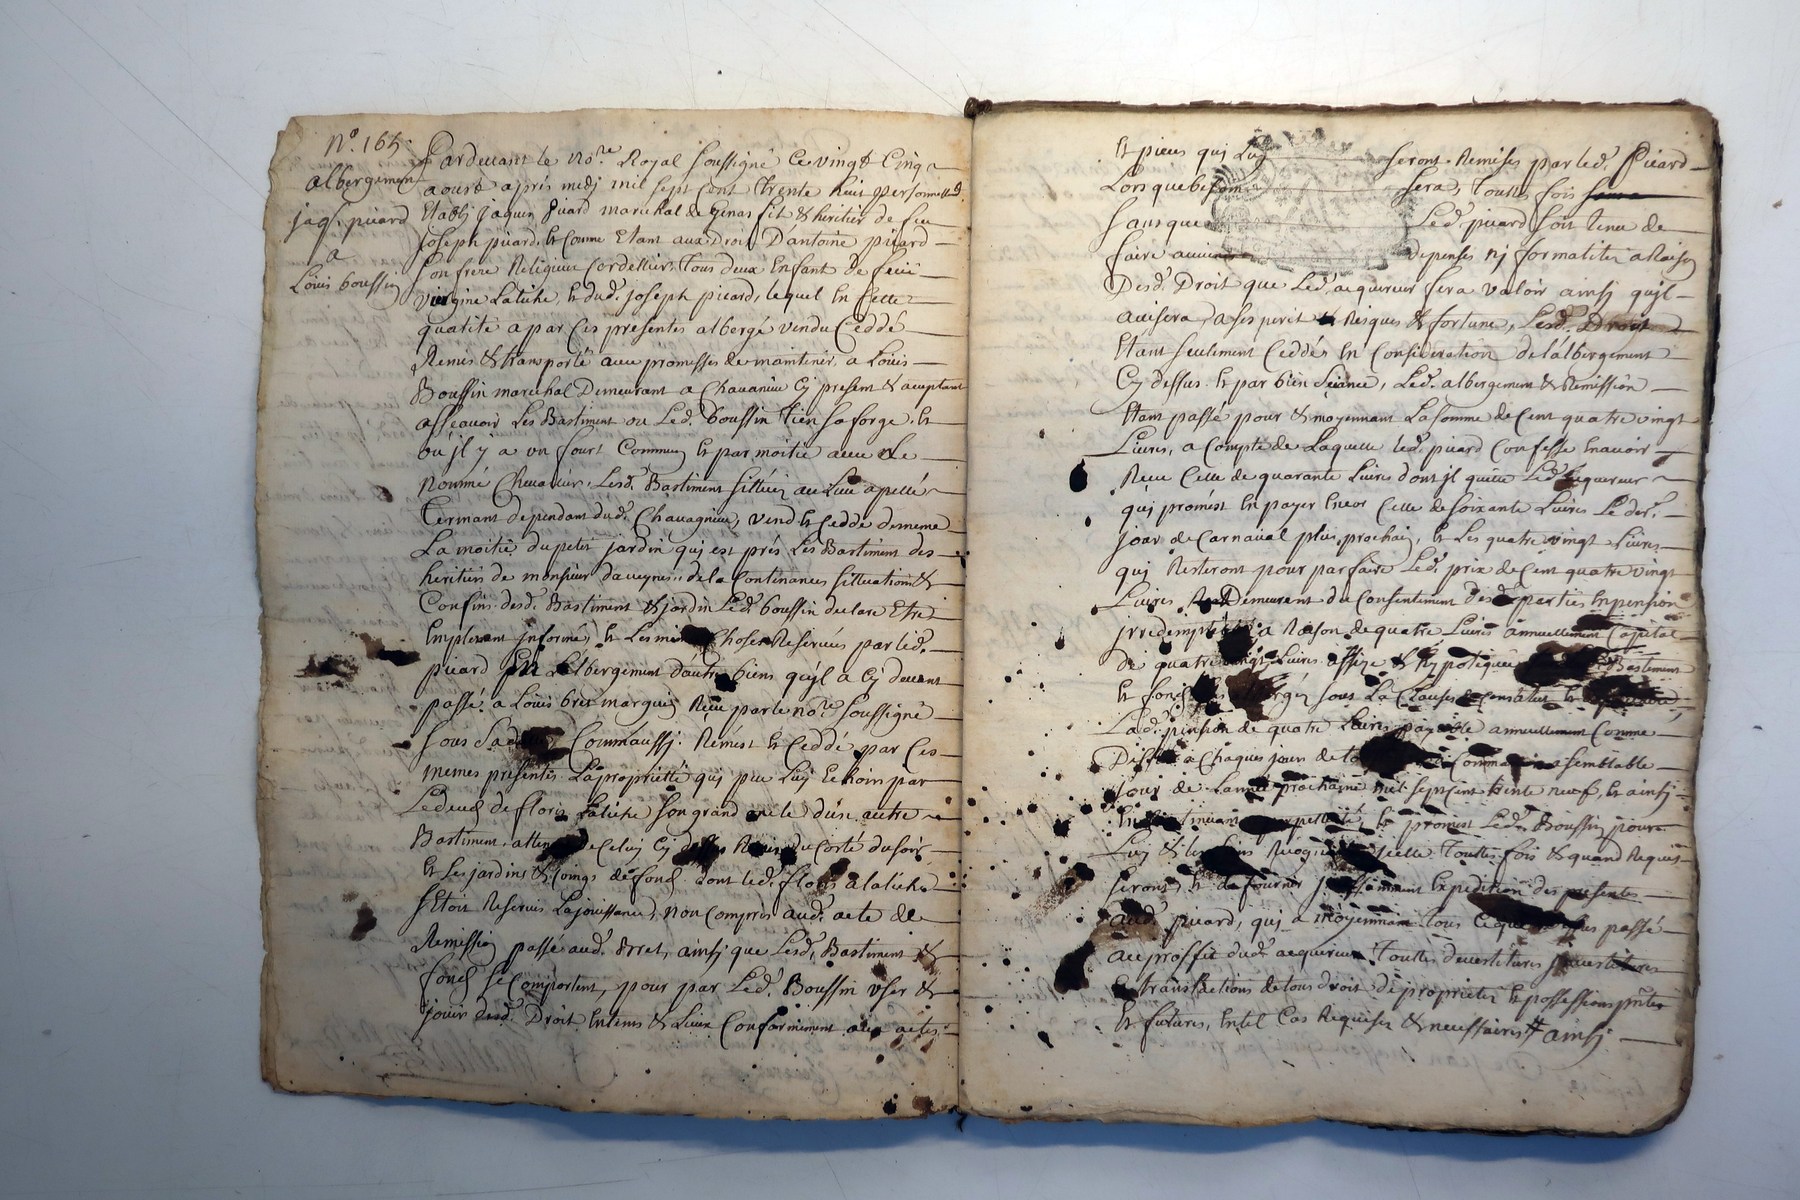 N.º 165.
albergement
jaq. picard
a
Loüis boussin
Pardevant le no.re Royal soussigné Ce vingt Cinq
aoust aprés midj mil sept cent trente huit personnellem.
Etablj jaques picard marechal de Genas fils & heritier de feu
joseph picard, et comme Etant aux Droit D'antoine picard
son frere Religieux Cordellier, tous deux Enfant de feüe
virgine Latiche, et dud. joseph picard, lequel En cette
qualité a par Ces presentes albergé vendu Ceddé
Remis & transporté avec promesses de maintenir, a Loüis
Boussin marechal Demeurant a Chavanieu Cy present & aceptant
assçavoir Les Bastiment ou Led. boussin tien sa forge, et
ou jl y a un fourt Commun et par moitié avec le
nommé Chevalier, Lesd. Bastiment sittüés au Lieu apellé
Cermant dependant dud. Chavagnieu, vend et cedde demême
La moitié du petit jardin qui est prés Les Bastiment des
heritiers de monsieur daveynes, de la Continances sittuations &
Confins desd. Bastiment & jardin Led. boussin declare Etre
Emplement jnformé, et Les mêmes Choses Reservées par led.
picard En L'albergement d'autre biens qu'jl a Cy devant
passé a Loüis bret marguis Reçu par le no.re soussigné
sous sa datte, Commaussj. Remest et Ceddé par Ces
mêmes presentes La proprietté qui peu Luy Echoir par
Ledeced de floris Latiche son grand oncle d'un autre
Bastiment attenant de Celuy Cy dessus du Costé du soir
et Les jardins & Coings de fond dont led. floris alatiche
s'Etoit Reservés Lajouissance, non Compris aud. acte de
Remission passé aud. Bret, ainsj que Lesd. Bastiment &
fond se Comportent, pour par Led. Boussin user &
jouir desd. Droit Entems & Lieux Conformement aux actes
Et pieces quj Luy seront Remises par led. Picard
Lorsque besoin sera, Toutes fois
sans que Led. picard soit tenu de
faire aucune depenses nj formalités a Raison
Desd. Droit que Led. acquereur fera valoir ainsj qujl
avisera a ses peril Risques & fortune, Lesd. Droit
Etant seulement Ceddés En Consideration de l'albergement
Cy dessus et par bien seiance, Led. albergement & Remission
Etant passé pour & moyennant La somme de Cent quatre vingt
Livres, a Compte de Laquelle led. picard Confesse Enavoir
Reçu Celle de quarante Livres dont jl quitte Led. acquereur
quj promest En payer Encor Celle de soixante Livres Le der.
jour de Carnaval plus prochain, et Les quatre vingt Livres
quj Resteront pour parfaire Led. prix de Cent quatre vingt
Livres Demeurent du Consentement desd. parties En pension
jrredemptible a Raison de quatre Livres annuellement Capital
de quatre vingt Livres assize & hypotequée Bastiment
et fond sous La Clauses de Constitut et
Lad. pension de quatre Livres payable annuellement Comme
Dessus a Chaques jours de semblable
jour de Lannée prochaine mil sept Cent trente neuf, et ainsj
perpetuité, et promest Led. Boussin pour
Luy & les siens toutes fois & quand Requis
seront, et de fournir jncessamment Expedition des presentes
aud. picard, quj a moyennant tous Ceque dessus passé
au proffit dud. acquereur Touttes devestitures jnvestitures
& translactions de tous droit de proprietés et possessions p.ntes
et futures, En tel Cas Requises & necessaires # ainsj